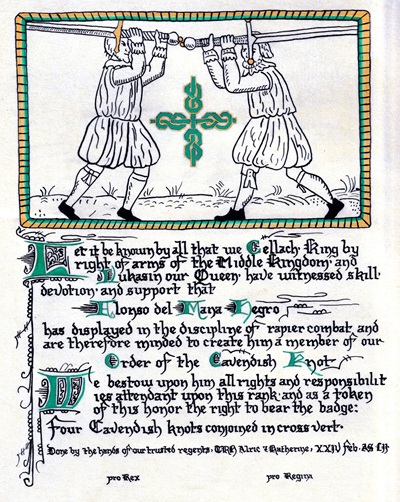 Let it be known by all that we Cellach King by
right of arms of the Middle Kingdom and
Lukasin our Queen have witnessed skill
devotion and support that
Alonso del Mana Negro
has displayed in the discipline of rapier combat and
are therefore minded to create him a member of our
Order of the Cavendish Knot
We bestow upon him all rights and responsibilit
ies attendant upon this rank and as a token
of this honor the right to bear the badge:
Four Cavendish knots conjoined in cross vert.
Done by the hands of our trusted regents, TRH Alric & Katherine, XXIV Feb. AS LII
pro Rex pro Regina